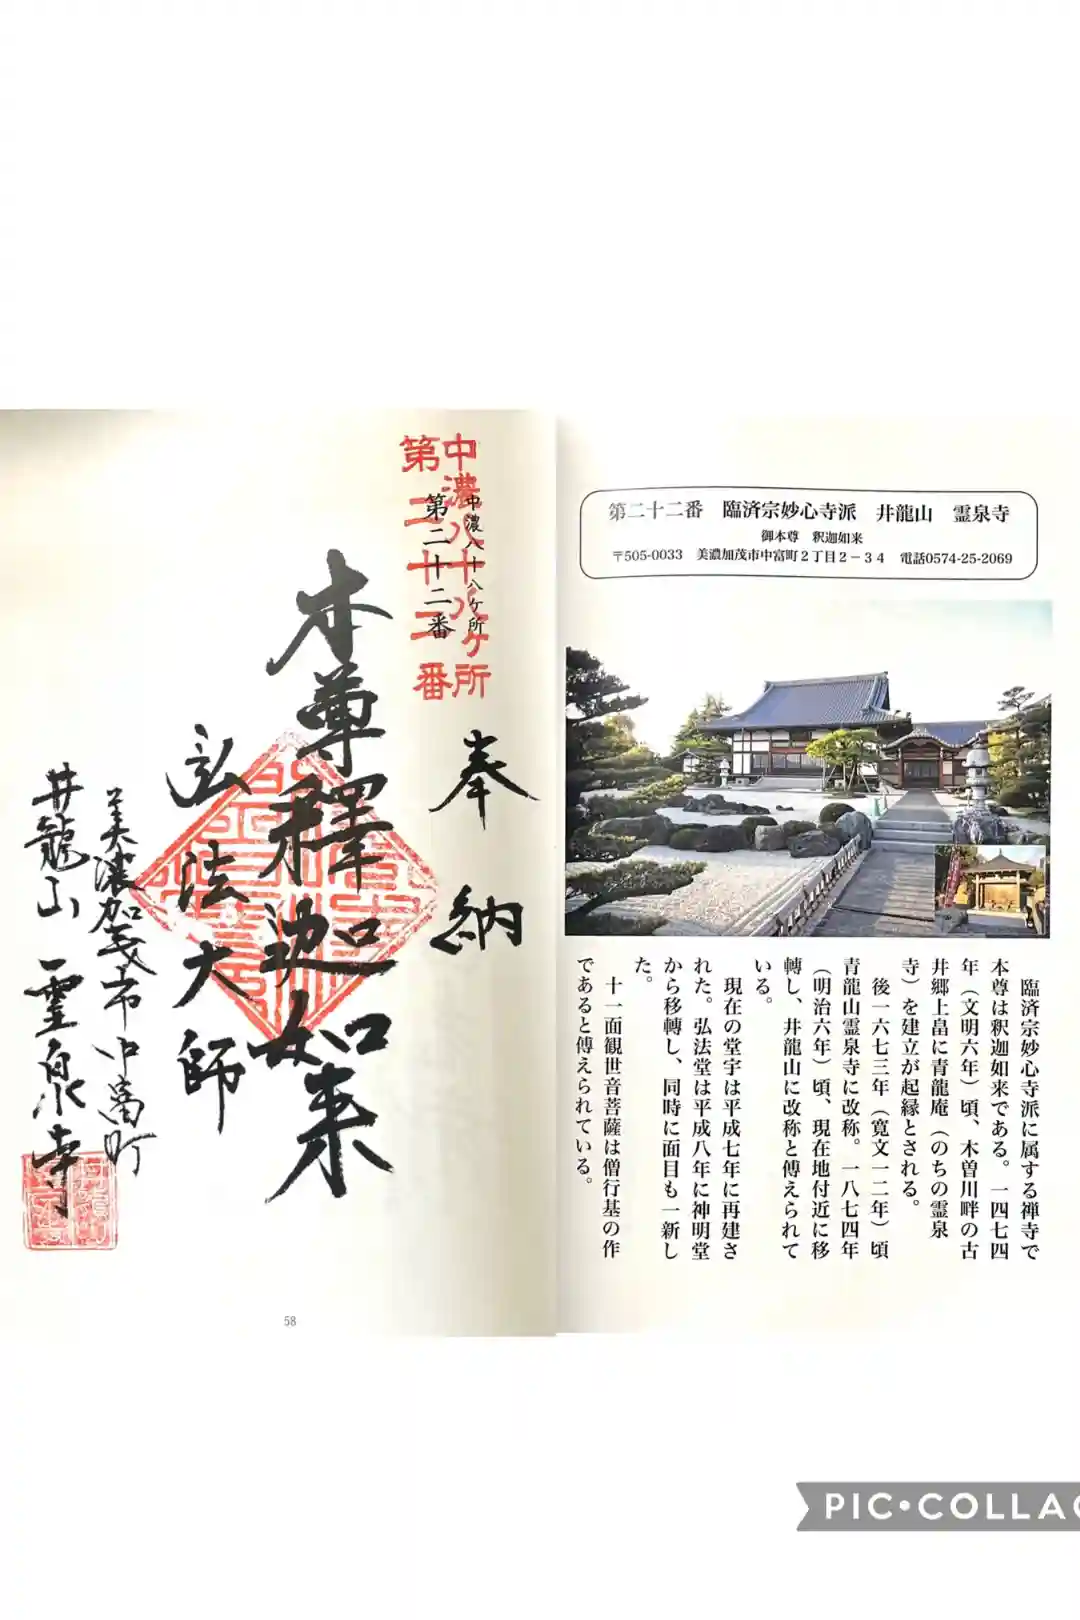 中濃八十八ケ所
第二十二番
中濃八十八ケ所
第二十二番
奉納
本尊釋迦如来
弘法大師
美濃加茂市中富町
井龍山霊泉寺
58
第二十二番 臨済宗妙心寺派 井龍山 霊泉寺
御本尊 釈迦如来
〒505-0033 美濃加茂市中富町2丁目2-34 電話0574-25-2069
臨済宗妙心寺派に属する禅寺で
本尊は釈迦如来である。一四七四
年(文明六年)頃、木曽川畔の古
井郷上畠に青龍庵(のちの霊泉
寺)を建立が起縁とされる。
後一六七三年(寛文一二年)頃
青龍山霊泉寺に改称。一八七四年
(明治六年)頃、現在地付近に移
轉し、井龍山に改称と傳えられて
いる。
現在の堂宇は平成七年に再建さ
れた。弘法堂は平成八年に神明堂
から移轉し、同時に面目も一新し
た。
十一面観世音菩薩は僧行基の作
であると傳えられている。
PIC•COLLAG